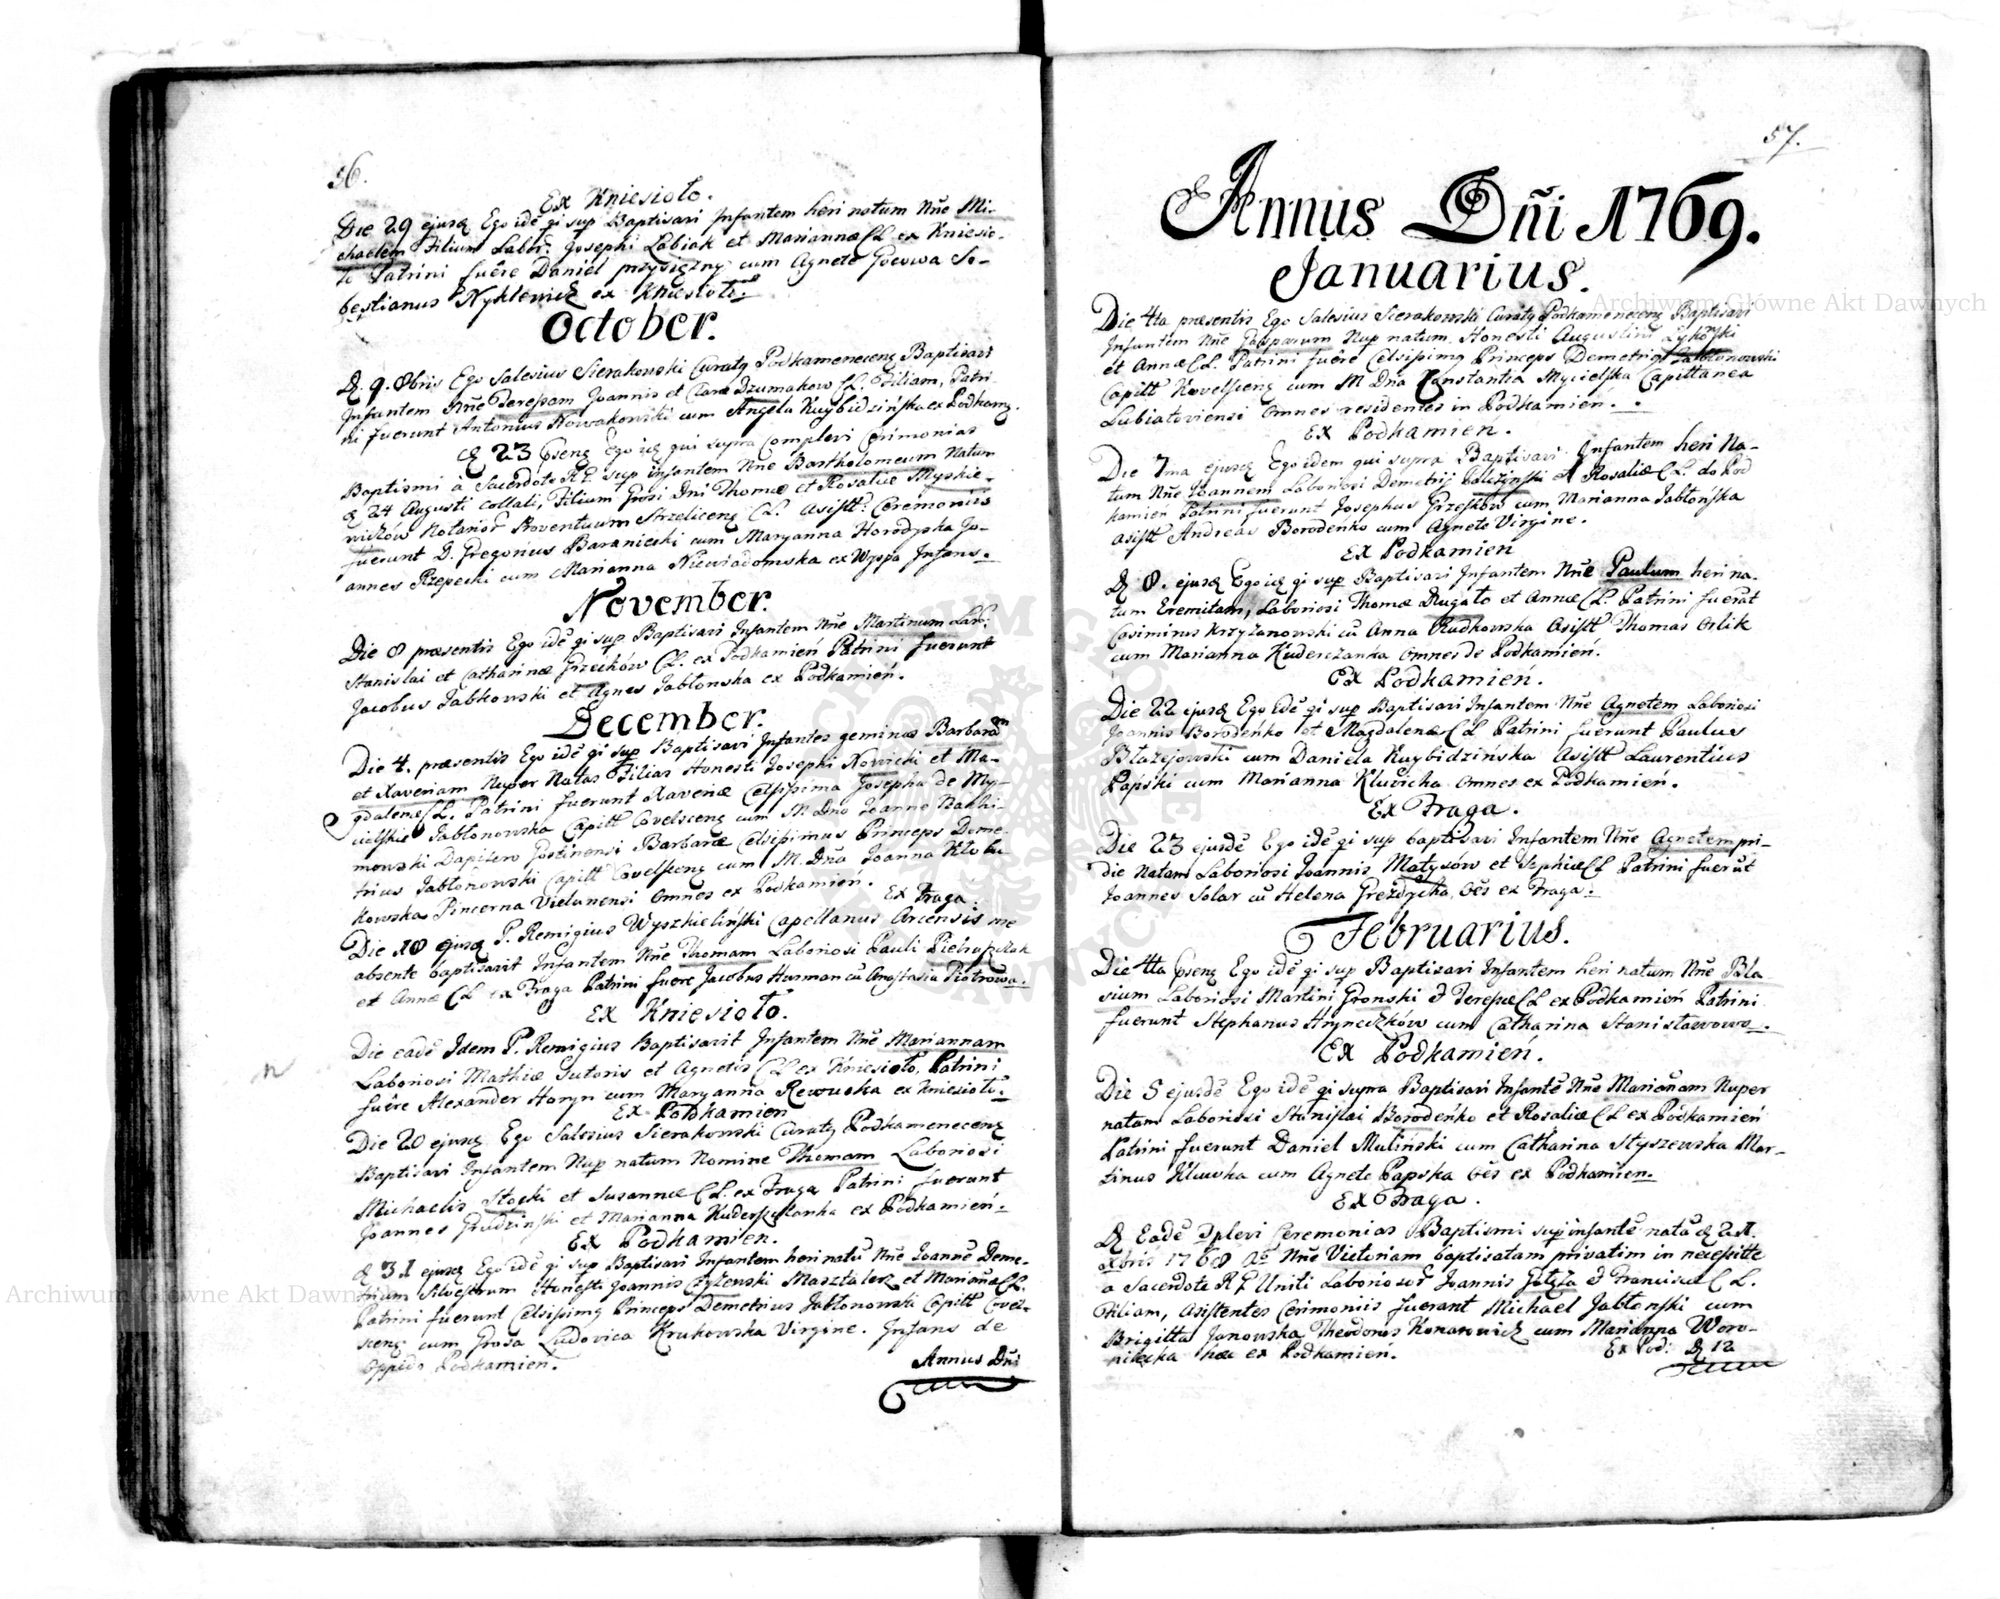 56.
Ex Kniesioło.
Die 29 ejusq Ego idē qi sup Baptisavi Infantem heri natum Nn̄e Mi-
chaelem Filium Labor. Josephi Labiak et Mariannæ CL ex Kniesio-
ło Patrini fuêre Daniel przysiężny cum Agnete Se-
bestianus Nyklewicz ex Kniesioło.
October.
D. 9. 8bris Ego Salesius Sierakowski Curatq Podkamenecenq Baptisavi
Infantem Nn̄e Teressam Joannis et Claræ Dzumakow CL. Filiam, Patri-
ni fuerunt Antonius Nowakowski cum Angela Kuybidzińska ex Podkamq.
D 23 psenq Ego iq qui supra Complevi Cerimonias
Baptismi à Sacerdote R. sup infantem Nn̄e Bartholomeum Natum
D 24 Augusti collati, Filium Grosi Dni Thomæ et Rosaliæ Myskie-
wiczów Notarior Proventuum Strzelicenq CL. Asistt: Ceremoniis
fuerunt D. Gregorius Baraniecki cum Maryanna Horodyska Jo-
annes Rzepecki cum Marianna Niewiadomska ex Wyspa Infans.
November.
Die 8 præsentis Ego idē qi sup Baptisavi Infantem Nn̄e Martinum Lab:
Stanislai et Catharinæ Grzechów CL. ex Podkamień Patrini fuerunt
Jacobus Jabkowski et Agnes Jabłonska ex Podkamień.
December.
Die 4. præsentis Ego idē qi sup Baptisavi Infantes geminas Barbaram
et Xaveriam Nuper Natas Filias Honesti Josephi Nowicki et Ma-
gdalenæ CL. Patrini fuerunt Xaveriæ Celssissima Josepha de My-
cielskie Jabłonowska Capitt Covelscenq cum M. Dno Joanne Bachi-
mowski Dapifero Gostinensi Barbaræ Celsissimus Princeps Deme-
trius Jabłonowski Capitt Covelscenq cum M. Dn̄a Joanna Kłobu-
kowska Pincerna Vielunensi Omnes ex Podkamień.
Ex Fraga.
Die 18 ejusq P. Remigius Wyszkieliński Capellanus Arcensis me
absente baptisavit Infantem Nn̄e Thomam Laboriosi Pauli Pietraszczak
et Annæ CL ex Fraga Patrini fuere Jacobus Human cū Anastasia Piotrowa.
Ex Kniesioło.
Die eadē Idem P. Remigius Baptisavit Infantem Nn̄e Mariannam
Laboriosi Mathiæ Sutoris et Agnetis CL ex Kniesioło, Patrini
fuêre Alexander Haryn cum Maryanna Rewucka ex Kniesioło.
Ex Podkamien
Die 20 ejusq Ego Salesius Sierakowski Curatq Podkamenecenq
Baptisavi Infantem Nup natum Nomine Thomam Laboriosi
Michaelis Stocki et Susannæ CL. ex Fraga Patrini fuerunt
Joannes Grudzinski et Marianna Kuderszczanka ex Podkamień.
Ex Podkamien.
D 31 ejusq Ego idē qi sup Baptisavi Infantem heri natū Nn̄e Joannē Deme-
trium Silvestrum Honesti Joannis Czyżewski Masztalerz et Mariānæ CL.
Patrini fuerunt Celsissimq Princeps Demetrius Jabłonowski Capitt Covel-
scenq cum Grosa Ludovica Krukowska Virgine. Infans de
Oppido Podkamien.
Annus Dn̄i
57.
Annus Dñi 1769.
Januarius.
Die 4ta præsentis Ego Salesius Sierakowski Curatq Podkamenecenq Baptisavi
Infantem Nn̄e Gasparum Nup natum Honesti Augustini Lykoski
et Annæ CL. Patrini fuêre Celsissimq Princeps Demetriq Jabłonowski
Capitt Kovelscenq cum M Dna Constantia Mycielska Capittanea
Lubiatoviensi Omnes residentes in Podkamien.
Ex Podkamien.
Die 7ma ejusq Ego idem qui supra Baptisavi Infantem heri Na-
tum Nn̄e Joannem Laboriosi Demetrij et Rosaliæ CL. de Pod
kamień Patrini fuerunt Josephus Grzesków cum Marianna Jabłońska
Asistt Andreas Borodenko cum Agnete Virgine.
Ex Podkamien
D 8. ejusq Ego iq qi sup Baptisavi Infantem Nn̄e Paulum heri na-
tum Eremitam, Laboriosi Thomæ Długato et Annæ CL. Patrini fuerūt
Casimirus Krzyżanowski cū Anna Rudkowska Asistt Thomas Orlik
cum Marianna Kuderczanka Omnes de Podkamień.
Ex Podkamień.
Die 22 ejusq Ego idē qi sup Baptisavi Infantem Nn̄e Agnetem Laboriosi
Joannis Borodeńko et Magdalenæ CL Patrini fuerunt Paulus
Błażejowski cum Daniela Kuybidzińska Asistt Laurentius
Papski cum Marianna Kluvicka Omnes ex Podkamień.
Ex Fraga.
Die 23 ejusdē Ego idē qi sup baptisavi Infantem Nn̄e Agnetem pri-
die Natam Laboriosi Joannis Matysów et Sophiæ CL Patrini fuerūt
Joannes Solar cū Helena Greżdycka Oēs ex Fraga.
Februarius.
Die 4ta psenq Ego idē qi sup Baptisavi Infantem heri natum Nn̄e Bla-
sium Laboriosi Martini Gronski & Teresæ CL ex Podkamień Patrini
fuerunt Stephanus Hrynczków cum Catharina Stanisławowa.
Ex Podkamień.
Die 5 ejusdē Ego idē qi supra Baptisavi Infantē Nn̄e Mariānam Nuper
natam Laboriosi Stanislai Borodeńko et Rosaliæ CL ex Podkamień
Patrini fuerunt Daniel Muliński cum Catharina Styszewska Mar-
tinus Kluwka cum Agnete Papska Oēs ex Podkamien.
Ex Fraga.
D Eadē Iplevi Ceremonias Baptismi sup infantē natā D 21
Xbris 1768 Ao Nn̄e Victoriam baptisatam privatim in necessitte
a Sacerdote R G Uniti Laboriosor Joannis Gołęza & Franciscæ CL.
Filiam, Asistentes Cerimoniis fuerunt Michael Jabłonski cum
Brigitta Janowska Theodorus Komarnicki cum Marianna Woro-
niecka hæc ex Podkamień.
Ex Pod: D 12
Archiwum Główne Akt Dawnych
Archiwum Główne Akt Dawnych